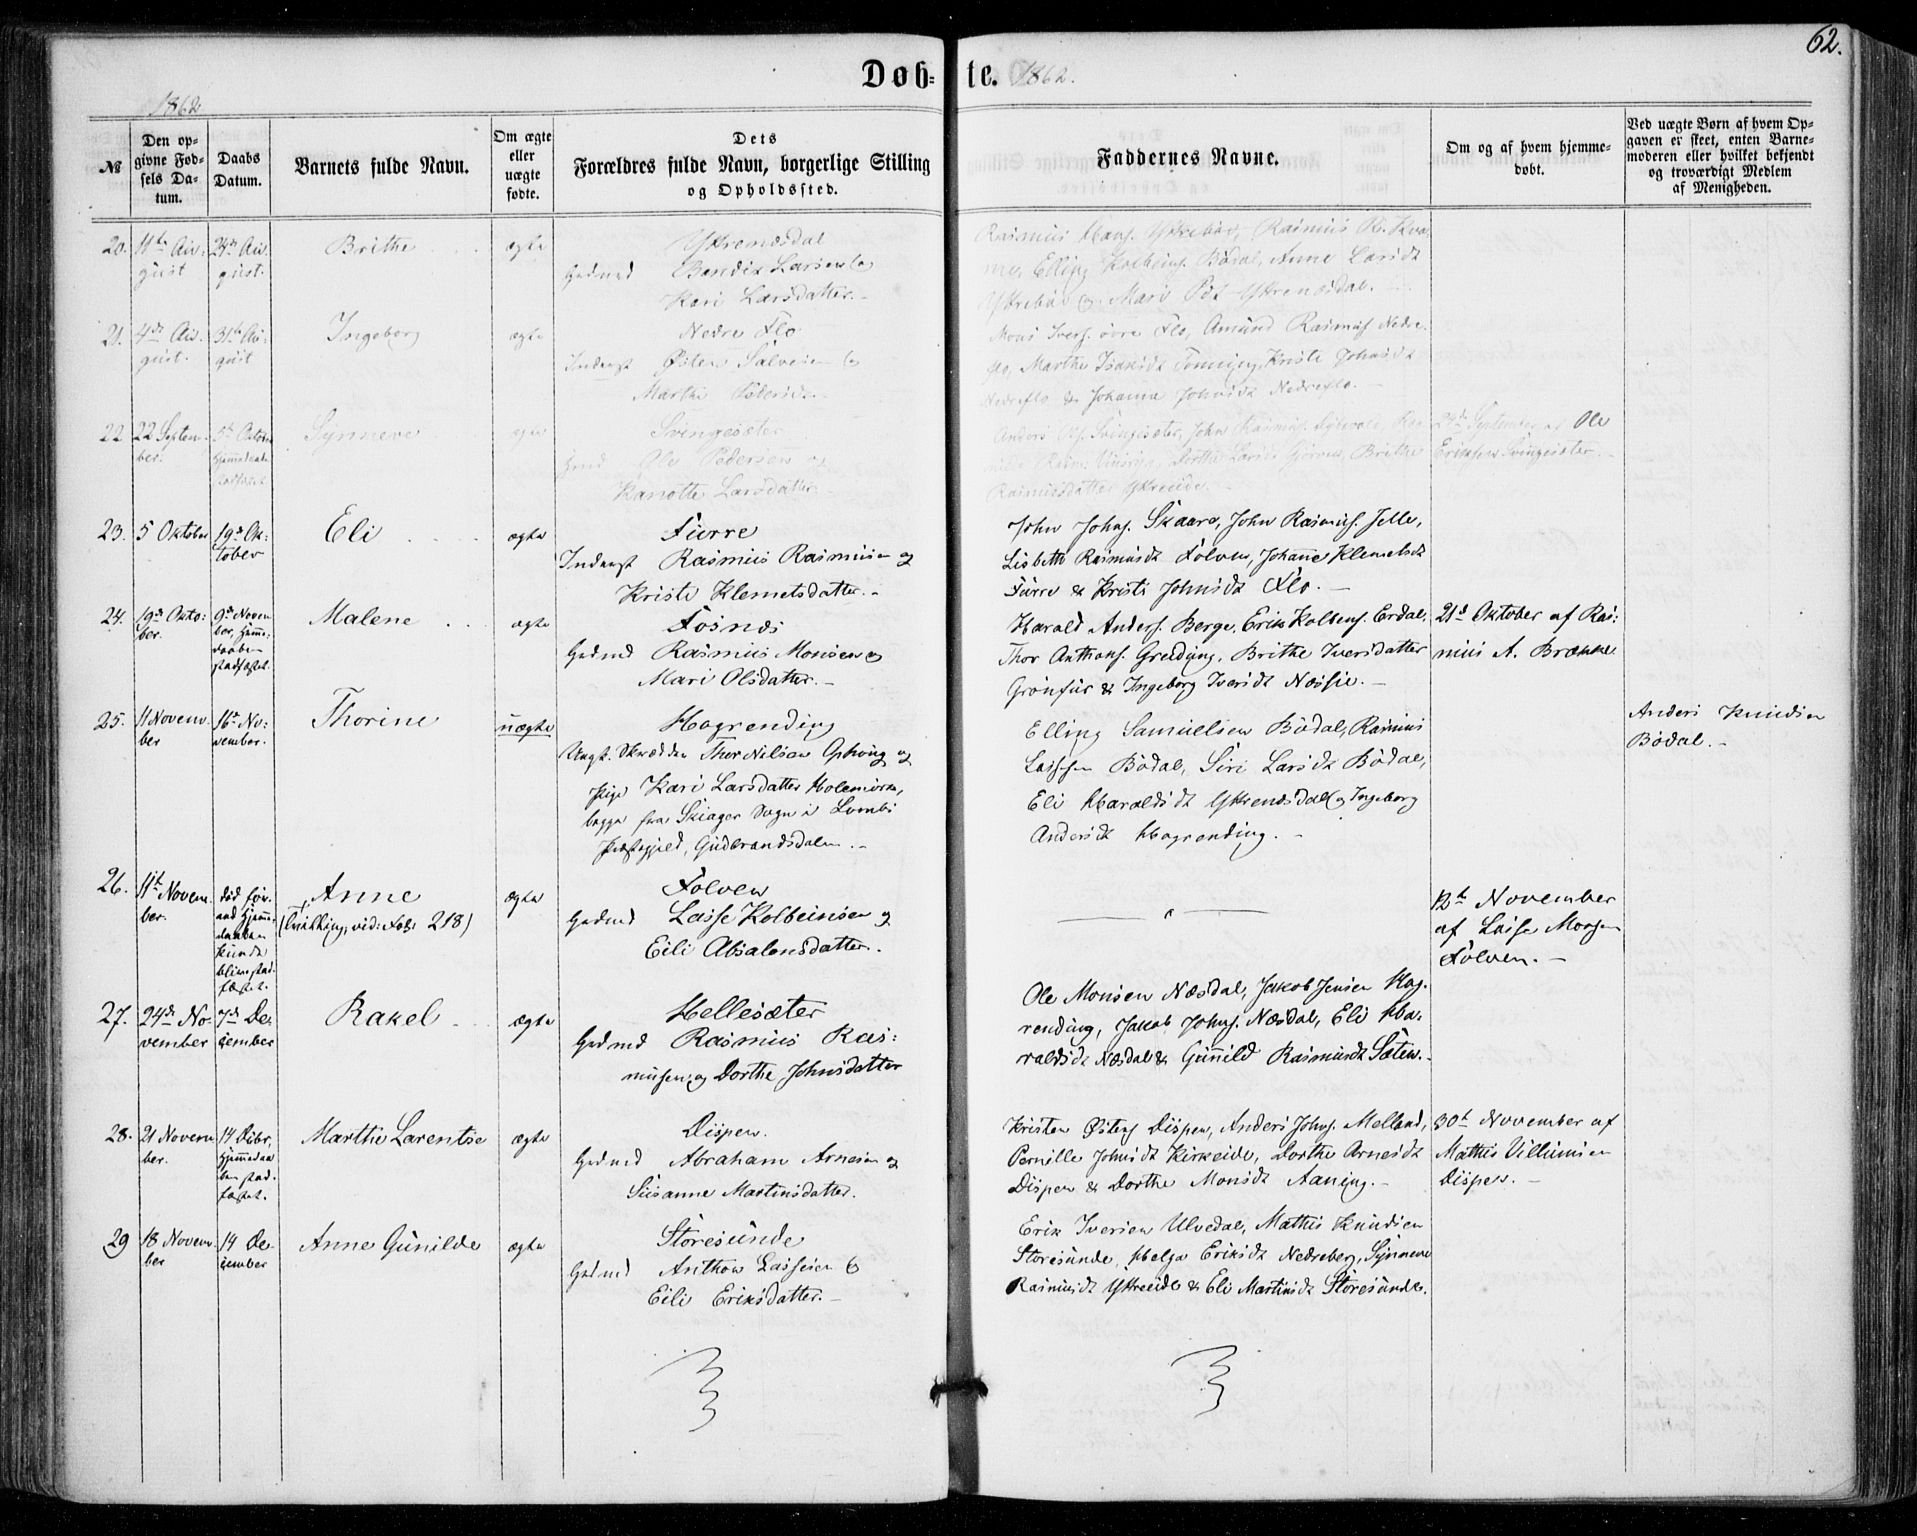 62.
Døb=te. 1862.
1862
№
Den op=
givne Fød=
sels Da=
tum.
Daabs
Datum.
Barnets fulde Navn.
Om ægte
eller
uægte
fødte.
Dets
Forældres fulde Navn, borgerlige Stilling
og Opholdssted.
Faddernes Navne.
Om og af hvem hjemme=
døbt.
Ved uægte Børn af hvem Op=
gaven er skeet, enten Barne=
moderen eller hvilket bekjendt
og troværdigt Medlem
af Menigheden.
20.
11te Au=
gust
24de Au=
gust.
Brithe
ægte
Yttrenæsdal
Gbdmd Bendix Larsen &
Kari Larsdatter.
Rasmus Hans. Yttrebøe, Rasmus R. Kva=
me, Elling Kolbeins. Bødal, Anne Larsdt
Yttrebøe & Mari Pdt Yttrenæsdal.
21.
4de Au=
gust.
31te Au=
gust
Ingeborg
ægte
Nedre Flo
Inderst Østen Salvesen &
Marthe Pedersdr
Mons Ivers. övre Flo, Amund Rasmus. Nedre=
flo, Marthe Isaksdt Tonning, Kristi Johnsdt
Nedreflo & Johanne Johnsdt Nedreflo.
22
22 Septem=
ber.
5te October
hjemmedaab
stadfæstet
Synneve
ægte
Svingesæter
Gbmd Ole Pedersen og
Kanutte Larsdatter.
Anders Ols. Svingesæter, John Rasmus.
Rasmusdatter Yttreeide.
24de September af Ole
Eriksen Svingesæter.
23.
5 Oktober
19de Ok=
tober
Eli
ægte
Furre
Inderst Rasmus Rasmusen og
Kristi Klemetsdatter.
John Johns. Skaare, John Rasmus. Jelle,
Lisbeth Rasmusdt Folven, Johanne Klemetsdt
Furre & Kristi Johnsdt Flo.
24.
19de Okto=
ber.
9de Novem=
ber, hjemme=
daaben
stadfæstet.
Malene
ægte
Fosnæs
Gbdmd Rasmus Monsen og
Mari Olsdatter.
Harald Anders. Berge, Erik Kolbens. Erdal,
Thor Anthons. Greidung, Brithe Iversdatter
Grönfur & Ingeborg Iversdt Næsje.
21de Oktober af Ras=
mus A. Brække
25.
11 Novem
ber
16de No=
vember.
Thorine
uægte
Hogrending
Ungk. Skrædder Thor Nilsen Ophoug og
Pige Kari Larsdatter Holemörk,
begge fra Skiager Sogn i Lombs
Præstegjeld, Gudbrandsdalen.
Elling Samuelsen Bödal, Rasmus
Lasses. Bödal, Siri Larsdt Bödal,
Eli Haraldsdt Yttrenæsdal og Ingeborg
Andersdt Hogrending.
Anders Knudsen
Bödal.
26.
11te Novem
ber.
död för=
end hjemme=
daaben
kunde
blive stad=
fæstet.
Anne
(tvilling, vid: Fol: 218)
ægte
Folven
Gbdmd Lasse Kolbeinsen og
Eili Absalonsdatter.
12te November
af Lasse Mons.
Folven.
27.
24de No=
vember
7de De=
cember
Rakel
ægte
Hellesæter
Gbdmd Rasmus Ras=
musen og Dorthe Johnsdatter
Ole Monsen Næsdal, Jakob Jensen Hog=
rending, Jakob Johns. Næsdal, Eli Ha=
raldsdt Næsdal & Gunnild Rasmusdt Sæten.
28.
21 Novem
ber.
14 Debr,
hjemmedaa
ben stad=
fæstet.
Marthe Larentse
ægte
Dispen.
Gbdmd Abraham Arnesen og
Susanne Martinsdatter.
Kristen Östens Dispen, Anders Johns. Melland,
Pernille Johnsdt Kirkeide, Dorthe Arnesdt
Dispen & Dorthe Monsdt Aaning.
30te November af
Mathis Villumsen
Dispen.
29
18 Novem
ber
14 De=
cember
Anne Gunilde
ægte
Storesunde
Gbdmd Anthon Lassesen &
Eili Eriksdatter.
Erik Iversen Ulvedal, Mathis Knudsen
Storesunde, Helga Eriksdt Nedreberg, Synneve
Rasmusdt Yttreeide & Eli Martinsdt Storesunde.